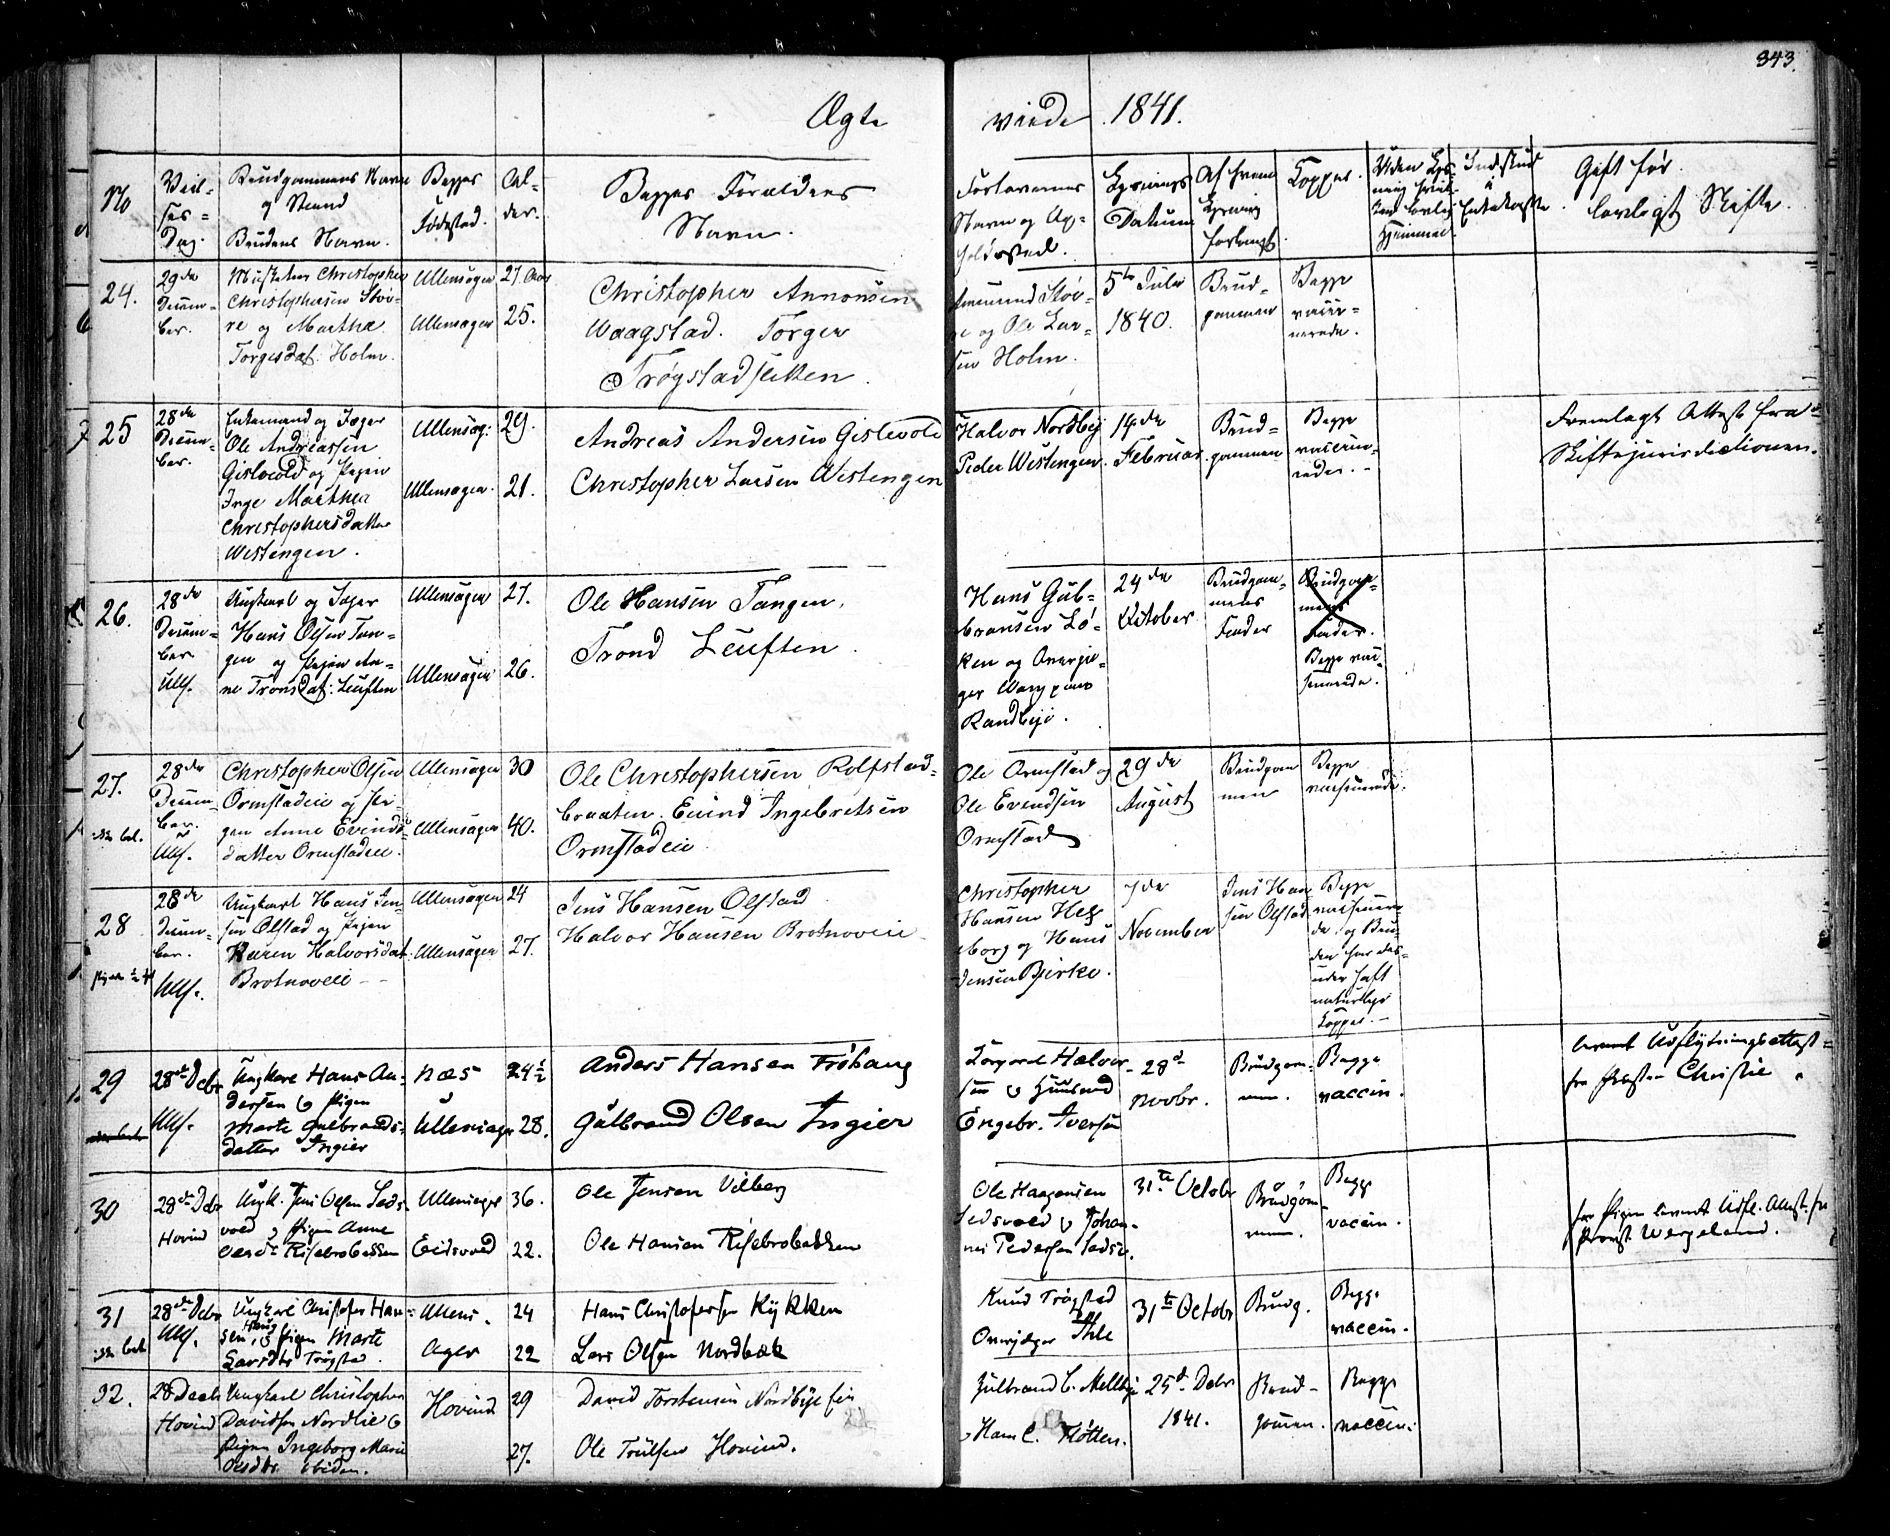 343.
Ægte viede 1841.
No
Viel-
ses-
Dag.
Brudgommens Navn
og Stand
Brudens Navn.
Begges
Fødested.
Al-
der.
Begges Forældres
Navn.
Forlovernes
Navn og Op-
holdssted.
Lysnings
Datum
Af hvem
Lysning
forlangt.
Kopper.
Gift før.
lovligt Skifte.
24.
29de
Decem-
ber.
Christopher
Christophersen
re og Marthe
Torgersdat: Holm.
Ullensager
Ullensager
27. Aar
25.
Christopher Amonsen
Waagstad. Torger
Trøgstad
re og Ole Lar-
sen Holm.
5te Juli
1840.
Brud-
gommen
Begge
vacci-
nerede.
25
28de
Decem-
ber.
Enkemand og Jæger
Ole Andreassen
Gislevold og Pigen
Inge Marthea
Christophersdatter
Westengen.
Ullensag:
Ullensager.
29.
21.
Andreas Andersen Gislevold
Christopher Larsen Westengen
Halvor Nordby
Peder Westengen.
14de
Februar
Brud-
gommen
Begge
vaccine-
rede.
Fremlagt Attest fra
Skiftejurisdictionen.
26.
28de
Decem-
ber.
Ull.
Ungkarl og Jæger
Hans Olsen Tan-
gen og Pigen An-
ne Tronsdat: Leuften
Ullensager
Ullensager
27.
26.
Ole Hansen Tangen.
Trond Leuften.
Hans Gul-
bransen Lø-
ken og
Randbye.
24de
October
Brudgom-
mens
Fader
Brudgom-
mens
Fader.
Begge vac-
cinerede.
27.
28de
Decem-
ber.
Ull.
Christopher Olsen
Ormstadeie og Pi-
gen Anne Evinds-
datter Ormstadeie.
Ullensager
Ullensager
30
40.
Ole Christophersen Rolfstad-
braaten. Evind Ingebretsen
Ormstadeie
Ole Ormstad og
Ole Evendsen
Ormstad
29de
August
Brudgom
men
Begge
vaccinerede.
28
28de
Decem-
ber.
Ull.
Ungkarl Hans Jen-
sen Olstad og Pigen
Karen Halvorsdat:
Brotnoveie
Ullensager
Ullensager
24
27.
Jens Hansen Olstad
Halvor Hansen Brotnoveie
Christopher
Hansen Hel-
eborg og Hans
Jensen Bjerke.
7de
November
Jens Han
sen Olstad
Begge
vaccinere-
de. og Bru-
den har des-
uden haft
naturlige
Kopper.
29
28de Dcbr
Ull.
Ungkarl Hans An-
dersen og Pigen
Marte Gulbrands-
datter Ingier
Næs
Ullensager
24½
28.
Anders Hansen Frøhaug
Gulbrand Olsen Ingier
Halvor-
sen og
Engebr. Iversen
28d
Novbr.
Brudgom-
men.
Begge
vaccin.
leveret Udflytningsattest
fra Præsten Christie.
30
28de Dcbr
Hovind
Ungk. Jens Olsen Leds-
vold og Pigen Anne
Olesdt. Risebrobakken
Ullensager
Eidsvold
36.
22.
Ole Jensen Vilberg
Ole Hansen Risebrobakken
Ole Haagensen
Ledsvold og Johan-
nes Pedersen Ledsv.
31te Octobr
Brudgom-
men.
Begge
vaccin.
for Pigen leveret Udfl. Attest fra
Provst Wergeland.
31
28de Dcbr
Ull.
Ungkarl Christofer Han-
sen Haug, og Pigen Marte
Larsdtr Trøgstad.
Ullens.
Ager
24
22
Hans Christofersen Kykken
Lars Olsen Nordbæk
Knud Trøgstad
Ihle
31te Octobr
Brudg.
Begge
vaccin.
32.
28 Decbr
Hovind
Ungkarl Christopher
Davidsen Nordlie og
Pigen Ingeborg Marie
Olsdtr.
Hovind
29
27.
David Torstensen Nordbye
Ole Truelsen Hovind.
Gulbrand C. Melbye
Hans C. Fløtten.
25d Dcbr
1841.
Brud-
gommen.
Begge
vaccin.